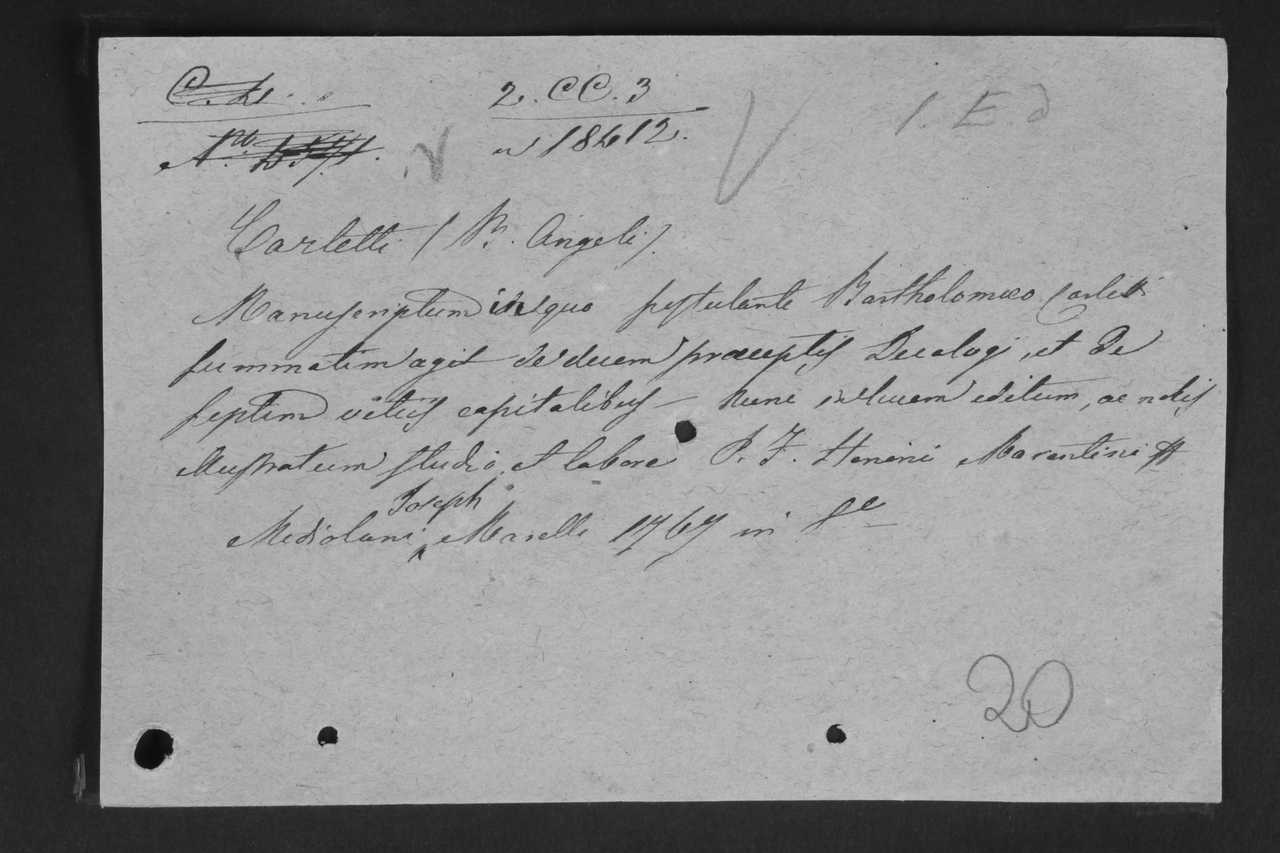 C. L.
2. CC. 3
1. E. d
No.
n 18412.
Carletti (B. Angeli).
Manuscriptum in quo postulante Bartholomæo Carletti
summatim agit de decem præceptis Decalogi, et de
septem vitiis capitalibus – Nunc in lucem editum, ac notis
illustratum studio, et labore P. F. Henrici Marentini
Joseph
Mediolani Marelli 1767 in 8e
20